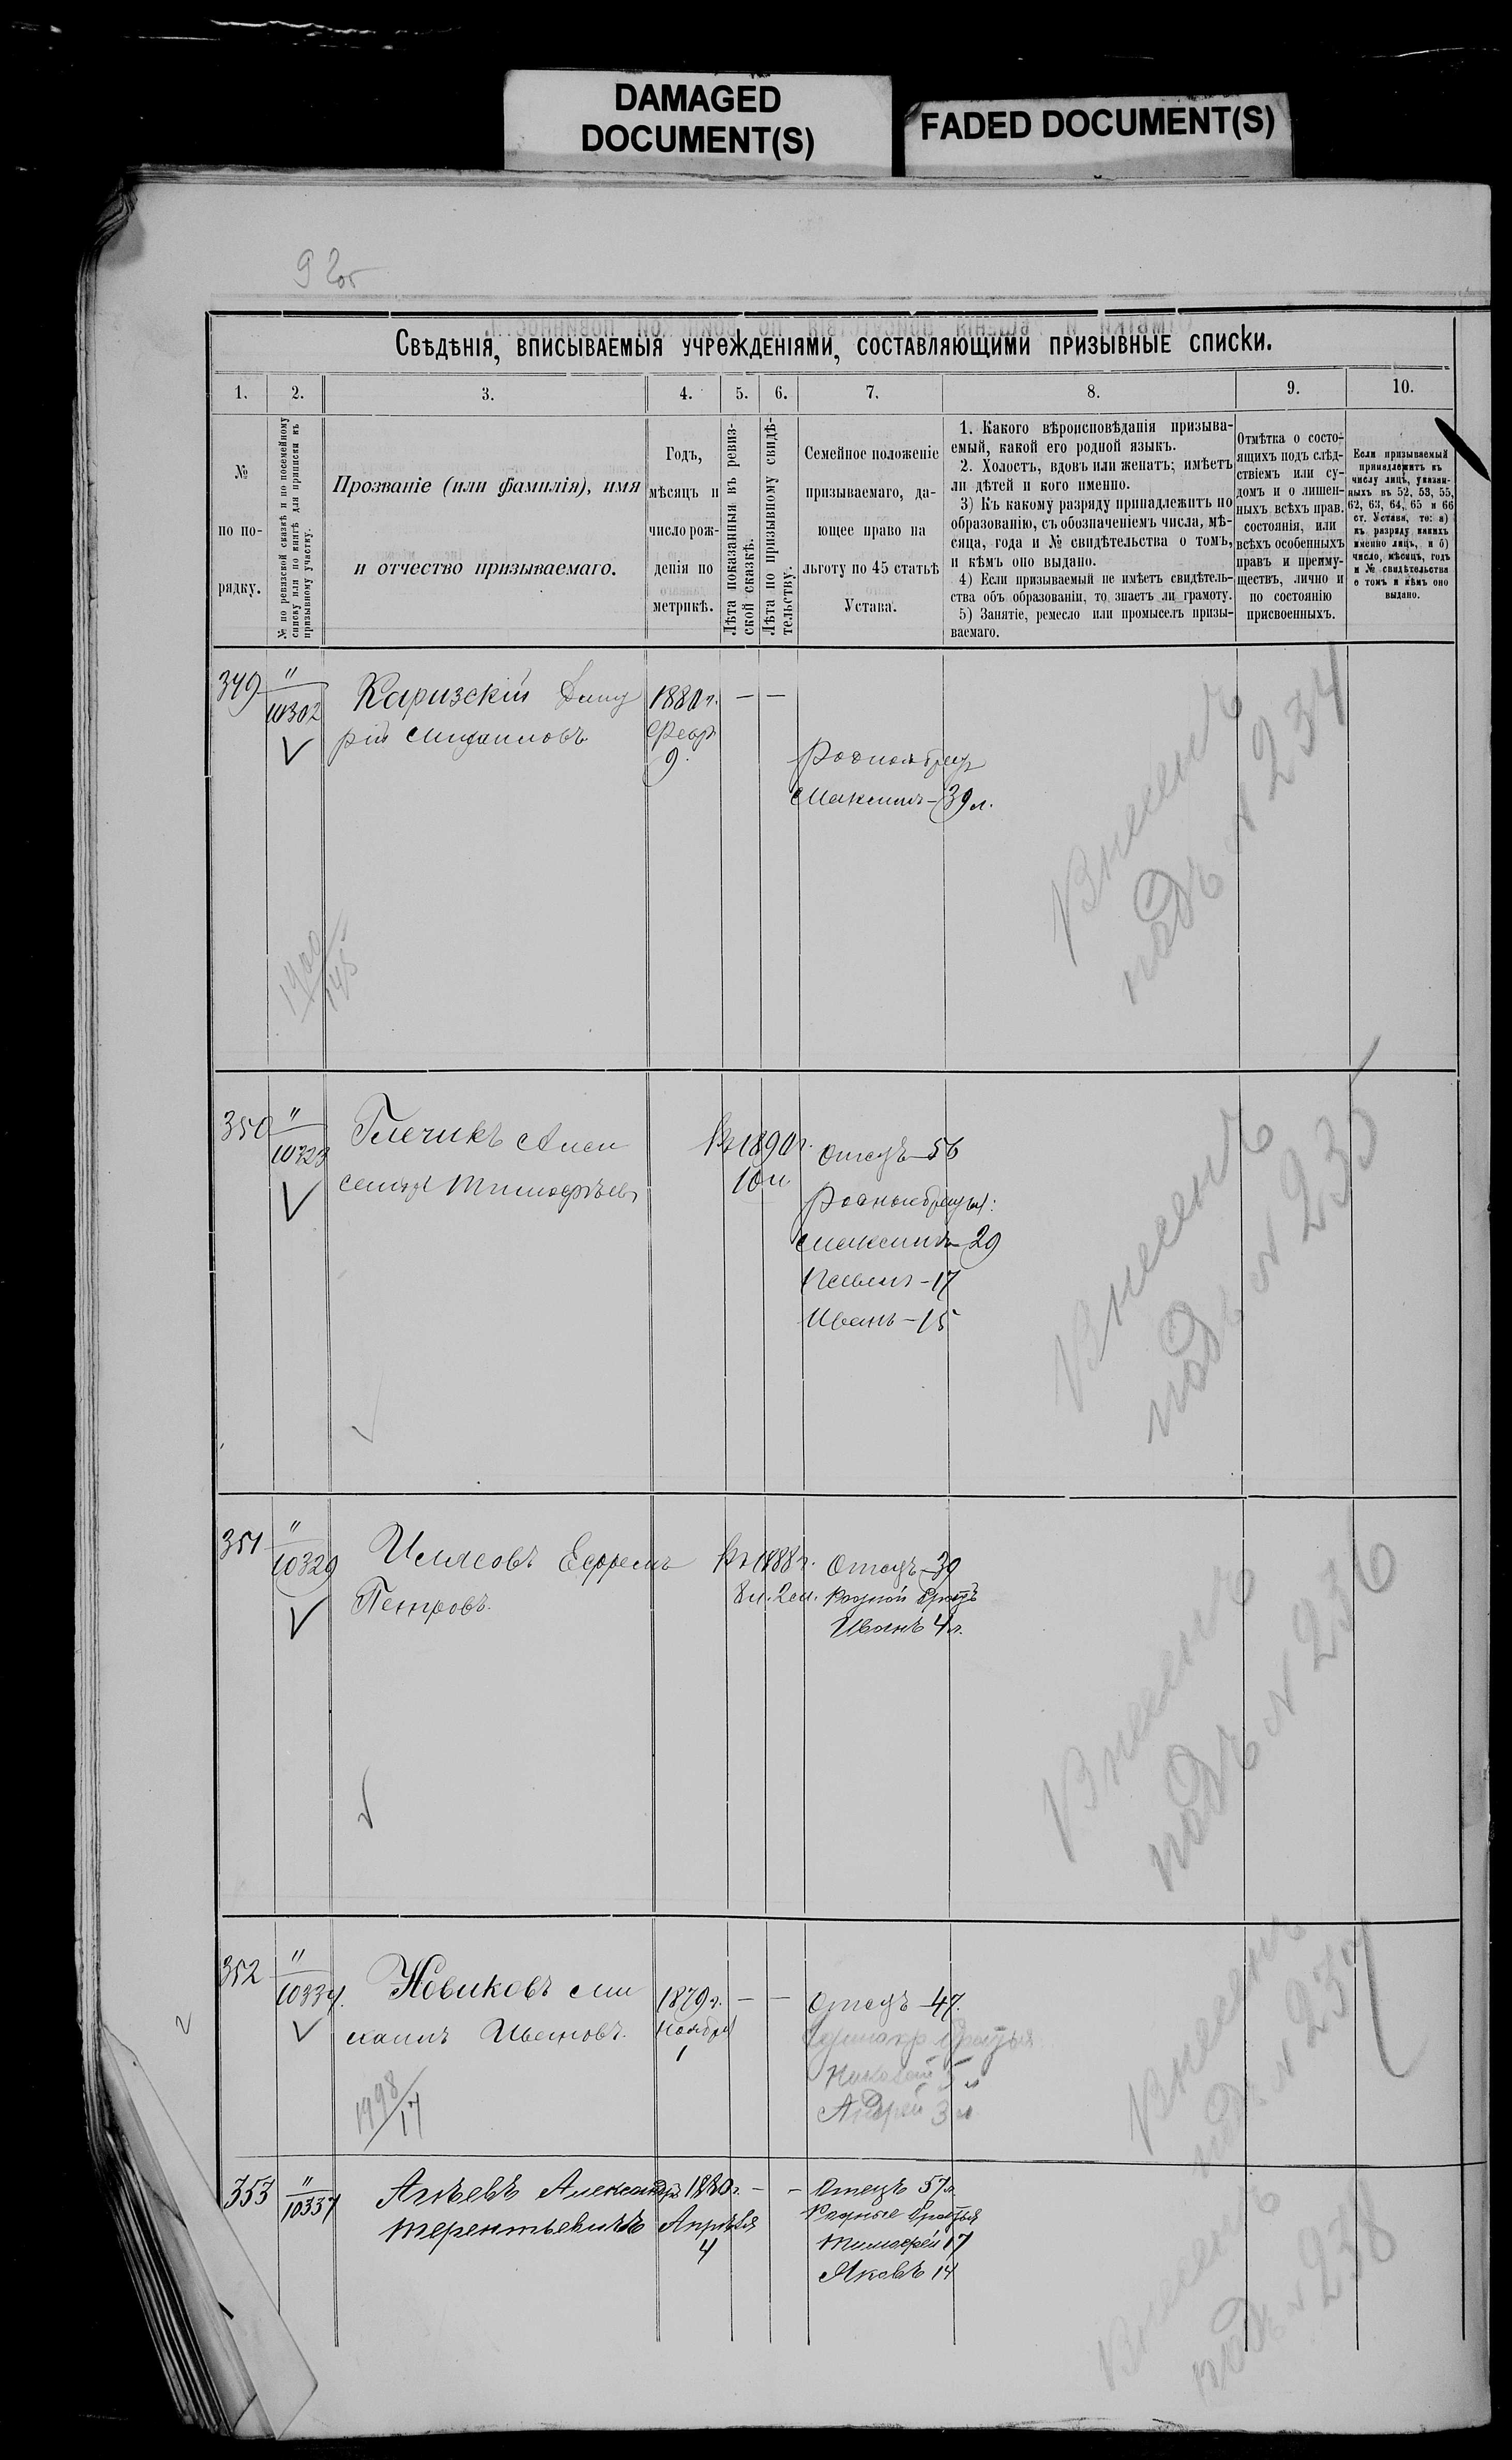 DAMAGED
DOCUMENT(S)
FADED DOCUMENT(S)
92об
Свѣдѣнія, вписываемыя учрежденіями, составляющими призывные списки.
1.
2.
3.
4.
5.
6.
7.
8.
9.
10.
№
по по-
рядку.
№ по ревизской сказкѣ и по посемейному
списку или по книгѣ для приписки къ
призывному участку.
Прозваніе (или фамилія), имя
и отчество призываемаго.
Годъ,
мѣсяцъ и
число рож-
денія по
метрикѣ.
Лѣта показанныя въ ревиз-
ской сказкѣ.
Лѣта по призывному свидѣ-
тельству.
Семейное положеніе
призываемаго, да-
ющее право на
льготу по 45 статьѣ
Устава.
1. Какого вѣроисповѣданія призыва-
емый, какой его родной языкъ.
2. Холостъ, вдовъ или женатъ; имѣетъ
ли дѣтей и кого именно.
3) Къ какому разряду принадлежитъ по
образованію, съ обозначеніемъ числа, мѣ-
сяца, года и № свидѣтельства о томъ,
и кѣмъ оно выдано.
4) Если призываемый не имѣетъ свидѣтель-
ства объ образованіи, то знаетъ ли грамоту.
5) Занятіе, ремесло или промыселъ призы-
ваемаго.
Отмѣтка о состо-
ящихъ подъ слѣд-
ствіемъ или су-
домъ и о лишен-
ныхъ всѣхъ прав.
состоянія, или
всѣхъ особенныхъ
правъ и преиму-
ществъ, лично и
по состоянію
присвоенныхъ.
Если призываемый
принадлежитъ къ
числу лицъ, указан-
ныхъ въ 52, 53, 55,
62, 63, 64, 65 и 66
ст. Устава, то: а)
къ разряду какихъ
именно лицъ, и б)
число, мѣсяцъ, годъ
и № свидѣтельства
о томъ и кѣмъ оно
выдано.
349
"
10302
Каризскій Дмит
рій
1880 г.
Февр
9.
— —
Родной братъ
Максимъ — 39 л.
Внесенъ
подъ N 234
1900
145
350
"
10323
Алек
сандр Тимофѣев
Въ 1890 г.
10 л.
Отецъ — 56
Родные братья:
Максимъ — 29
Павелъ — 17
Иванъ — 15
Внесенъ
подъ N 235
351
"
10329
Ефремъ
Петровъ.
Въ 1888 г.
8 л. 2 м.
Отецъ — 39
Родной братъ
Иванъ 4 л.
Внесенъ
подъ N 236
352
"
10334.
Новиковъ Ми
хаилъ Ивановъ.
1879 г.
Ноября
1
— —
Отецъ — 47.
братья
Николай 5 л
Андрей 3 л
1998
17
Внесенъ
подъ N 237
353
"
10337
Александръ
Терентьевичъ
1880 г.
Апрѣля
4
— —
Отецъ 57 л
Родные братья
Тимофей 17
Яковъ 14
Внесенъ
подъ N 238